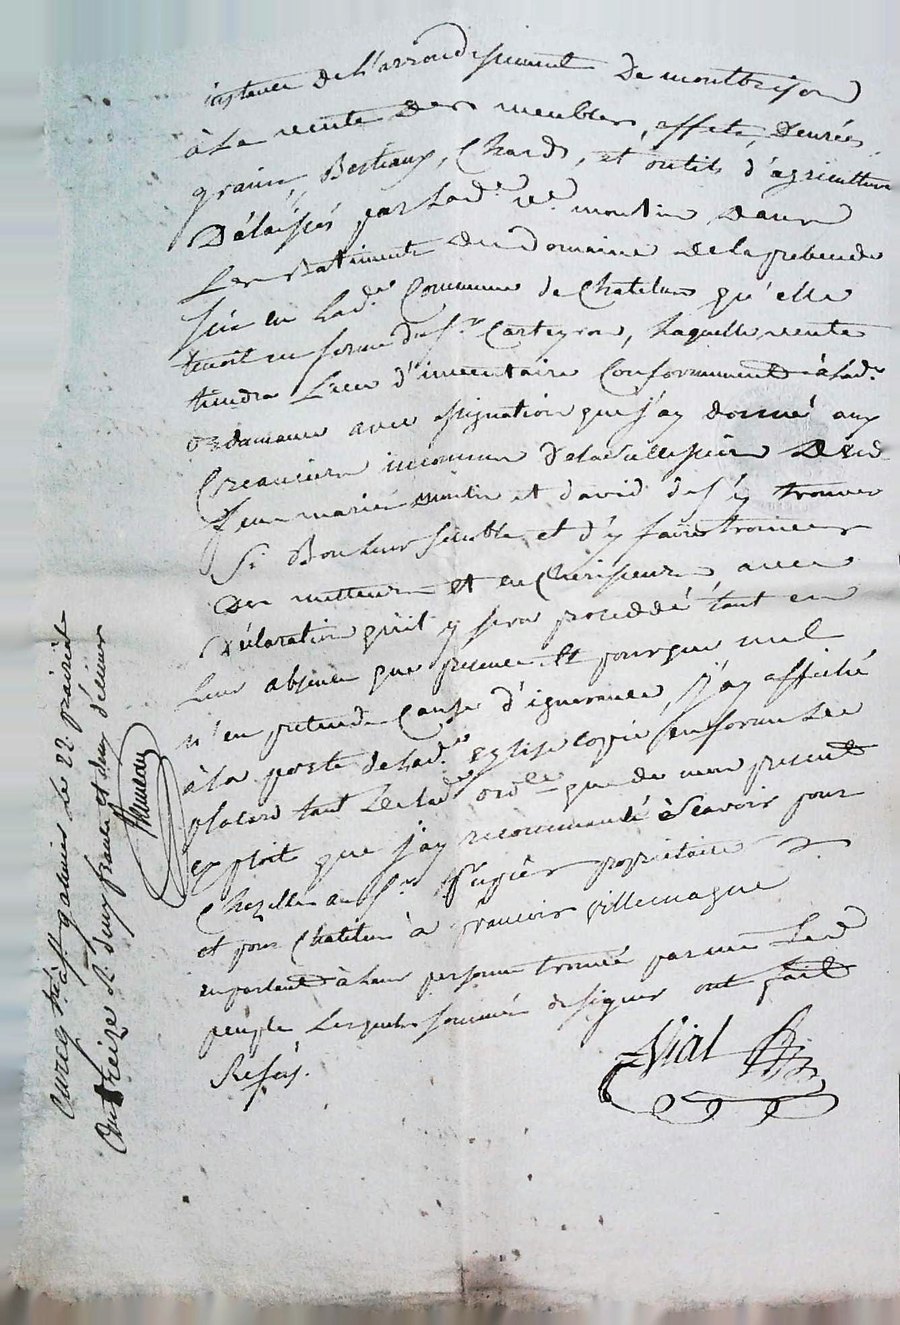 instance de l'arrondissement de montbrison
à la vente des meubles, effets, denrées,
grains, Bestiaux, Chards, et outils d'agriculture
Délaissés par lad.e v.e moulin dans
Les Batiments du domaine de la prebende
sis en lad.e Commune de Chatelus qu'elle
tenoit en ferme du s.r Carteyron, laquelle vente
tiendra Lieu d'inventaire Conformement à lad.e
ordonnance avec assignation que j'ay donné aux
Creanciers inconnus de la succession desd
Jean marie moulin et david de s'y trouver
si Bon leur semble et d'y faire trouver
des metteurs et encherisseurs, avec
Déclaration qu'il y sera procédé, tant en
leur absence que presence Et pour que nul
n'en pretende Cause d'ignorance, j'ay affiché
à la porte de lad.e Eglise copie en forme de
placard tant de lad.e ord.ce que de mon present
exploit que j'ay recommandé à Scavoir pour
Chazelles au s.r propriétaire
et pour Chatelus à francois villemagne
en parlant à leur personne trouvée parmi led
peuple lesquels sommés de signer ont fait
Refus.
Vial
Enreg.tré à s.t galmier le 22 prairial
an treize R. deux francs et deux décimes